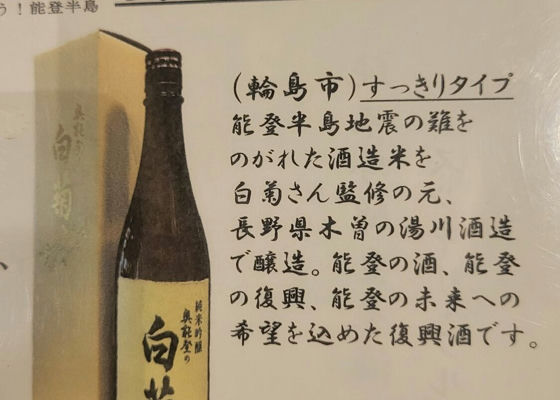 う！能登半島
(輪島市)すっきりタイプ
能登半島地震の難を
のがれた酒造米を
白菊さん監修の元、
長野県木曽の湯川酒造
で醸造。能登の酒、能登
の復興、能登の未来への
希望を込めた復興酒です。
奥能登の
白菊
純米吟醸
奥能登の
白菊